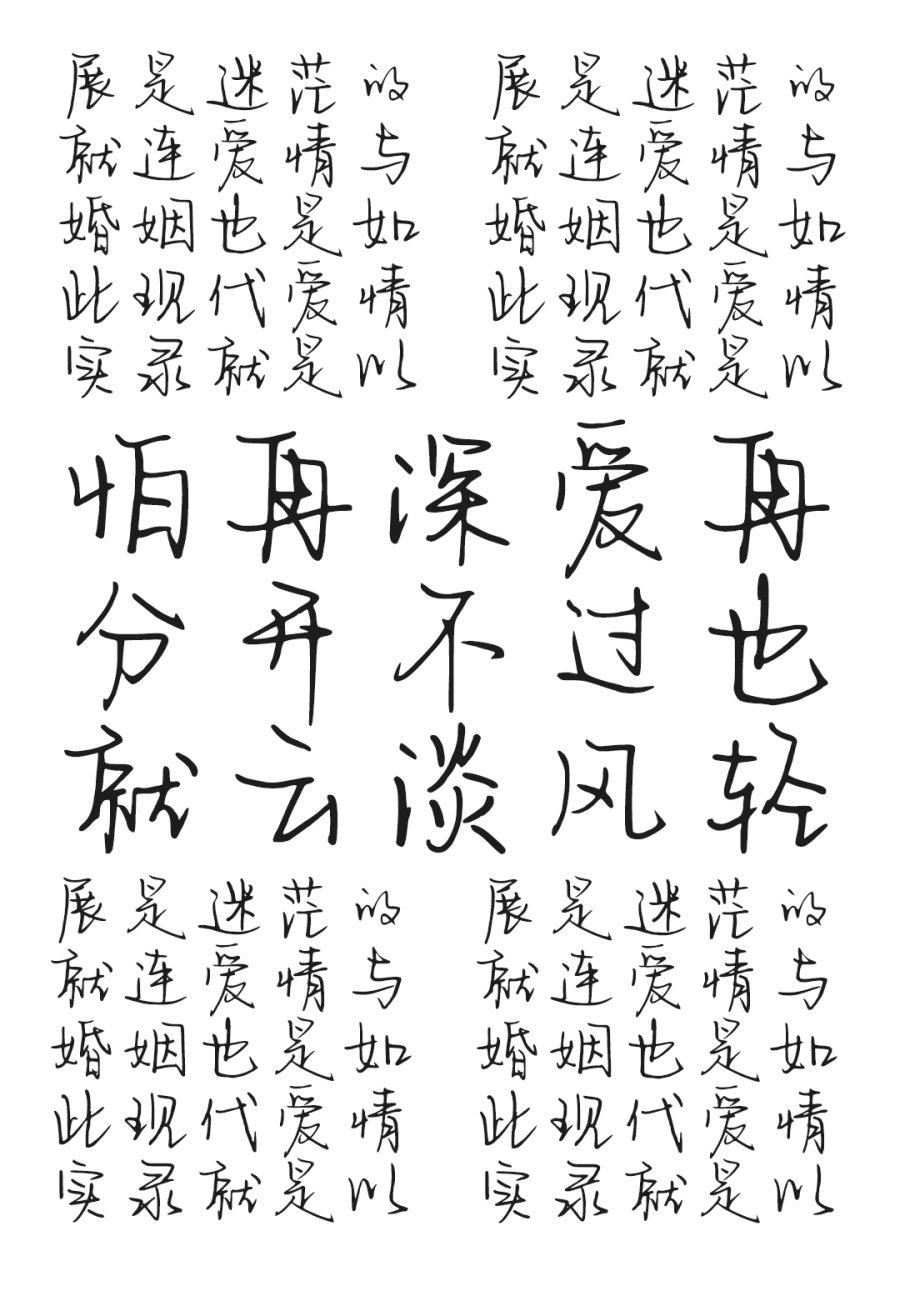 展是迷茫的
就连爱情与
婚姻也是如
此现代爱情
实录就是以
展是迷茫的
就连爱情与
婚姻也是如
此现代爱情
实录就是以
怕再深爱再
分开不过也
就云淡风轻
展是迷茫的
就连爱情与
婚姻也是如
此现代爱情
实录就是以
展是迷茫的
就连爱情与
婚姻也是如
此现代爱情
实录就是以